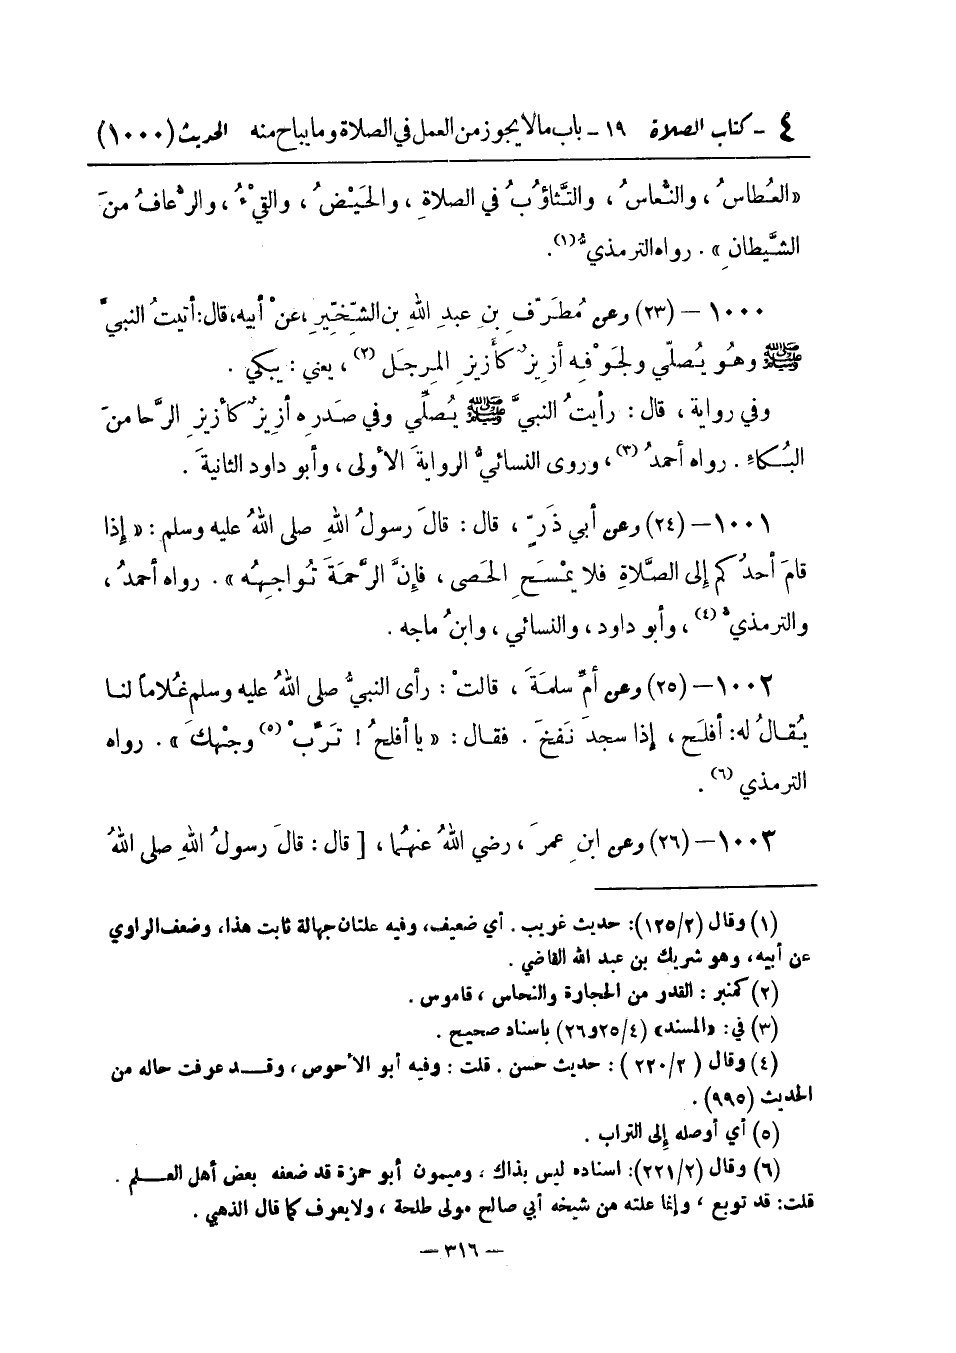 ٤ - كتاب الصلاة ١٩ - باب ما لا يجوز من العمل في الصلاة وما يباح منه الحديث (١٠٠٠)
«العُطاسُ، والنُّعاسُ، والتَّثاؤُبُ في الصلاةِ، والحَيْضُ، والقَيْءُ، والرُّعافُ منَ
الشَّيطانِ». رواه الترمذيُّ(١).
١٠٠٠ - (٢٣) وعن مُطَرِّفِ بنِ عبدِ اللهِ بنِ الشِّخِّيرِ، عنْ أبيه، قال: أتيتُ النبيَّ
ﷺ وهُو يُصلّي ولجَوْفِه أَزيزٌ كأَزيزِ المِرجَل (٢)، يعني: يبكي.
وفي رواية، قال: رأيتُ النبيَّ ﷺ يُصلِّي وفي صَدرِه أزيزٌ كأزيزِ الرَّحا منَ
البُكاءِ. رواه أحمدُ (٣)، وروى النسائيُّ الروايةَ الأولى، وأبو داود الثانيةَ.
١٠٠١ - (٢٤) وعن أبي ذَرٍّ، قال: قالَ رسولُ اللهِ صلى اللهُ عليه وسلم: «إذا
قامَ أحدُكم إلى الصَّلاةِ فلا يمْسَحِ الحَصى، فإنَّ الرَّحمَةَ تُواجِهُه». رواه أحمدُ،
والترمذيُّ (٤)، وأبو داود، والنسائي، وابنُ ماجه.
١٠٠٢ - (٢٥) وعن أمِّ سلمَةَ، قالتْ: رأى النبيُّ صلى اللهُ عليه وسلم غُلاماً لنا
يُقالُ له: أفلَح، إذا سجدَ نَفَخَ. فقال: «يا أفلحُ! تَرِّبْ (٥) وجْهكَ». رواه
الترمذي (٦).
١٠٠٣ - (٢٦) وعن ابنِ عمرَ، رضي اللهُ عنهُما، [قال: قالَ رسولُ اللهِ صلى اللهُ
(١) وقال (١٢٥/٢): حديث غريب. أي ضعيف، وفيه علتان جهالة ثابت هذا، وضعف الراوي
عن أبيه، وهو شريك بن عبد الله القاضي.
(٢) كمنبر: القدر من الحجارة والنحاس، قاموس.
(٣) في: «المسند» (٢٥/٤ و٢٦) باسناد صحيح.
(٤) وقال (٢٢٠/٢): حديث حسن. قلت: وفيه أبو الأحوص، وقد عرفت حاله من
الحديث (٩٩٥).
(٥) أي أوصله إلى التراب.
(٦) وقال (٢٢١/٢): اسناده ليس بذاك، وميمون أبو حمزة قد ضعفه بعض أهل العلم.
قلت: قد توبع، وإنما علته من شيخه أبي صالح مولى طلحة، ولا يعرف كما قال الذهبي.
- ٣١٦ -